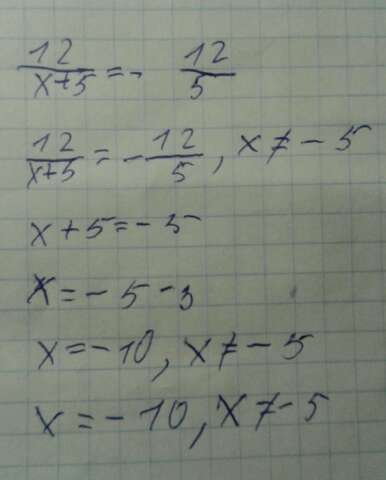 12/x+5 = - 12/5
12/x+5 = - 12/5, x ≠ - 5
x + 5 = - 5
x = - 5 - 5
x = - 10, x ≠ - 5
x = - 10, x ≠ - 5